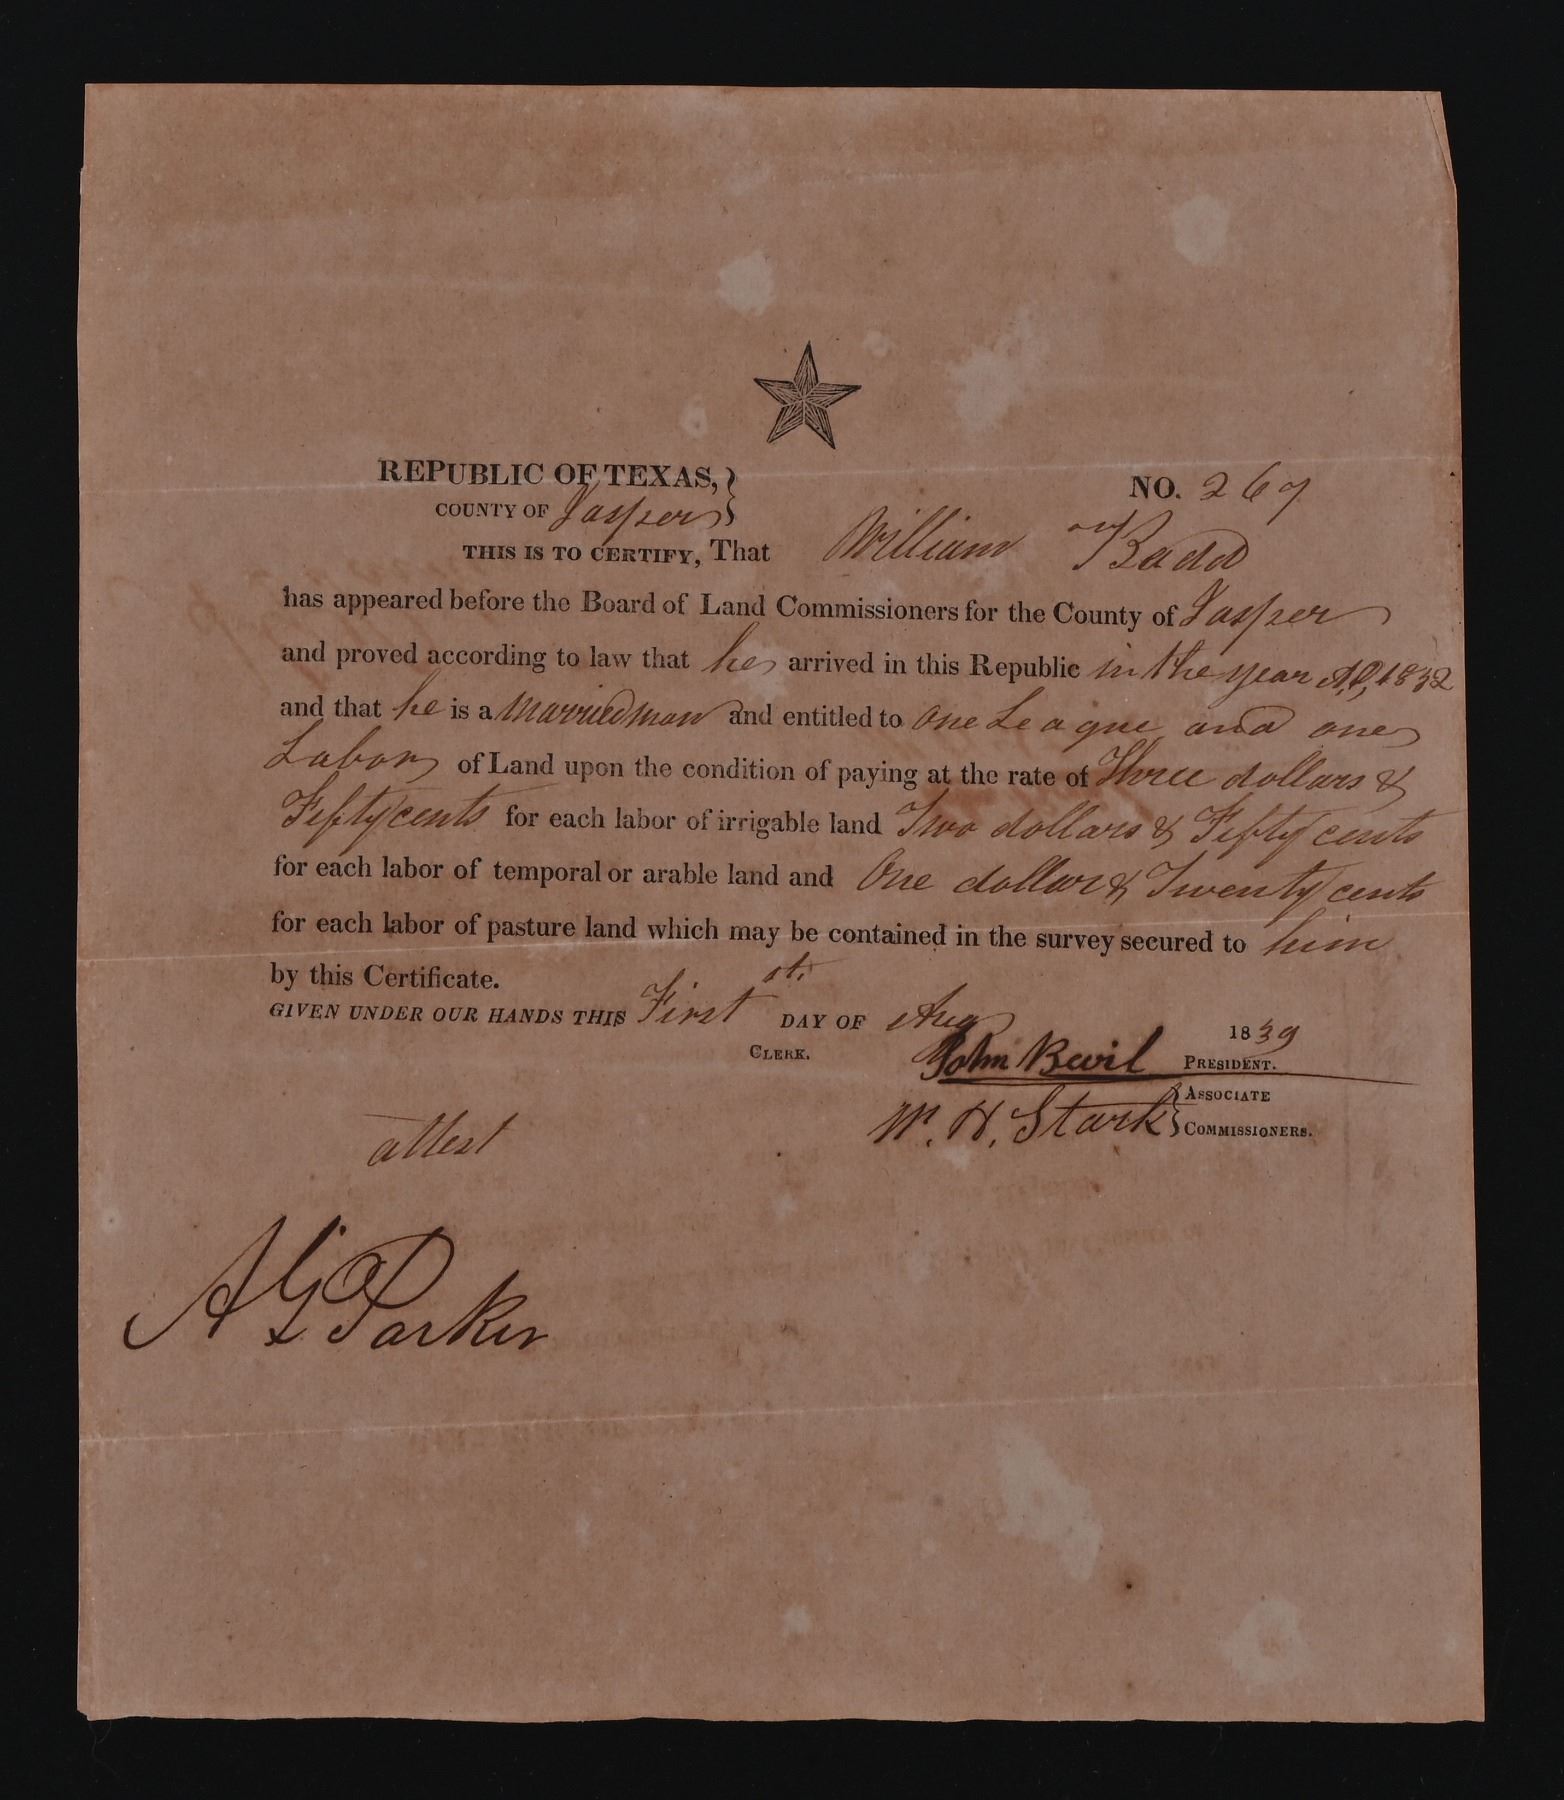 REPUBLIC OF TEXAS, }
COUNTY OF Jasper }
NO. 267
THIS IS TO CERTIFY, That William Badd
has appeared before the Board of Land Commissioners for the County of Jasper
and proved according to law that he arrived in this Republic in the year A,D, 1832
and that he is a married man and entitled to one League and one
Labor of Land upon the condition of paying at the rate of Three dollars &
Fifty cents for each labor of irrigable land Two dollars & Fifty cents
for each labor of temporal or arable land and One dollar & Twenty cents
for each labor of pasture land which may be contained in the survey secured to him
by this Certificate.
GIVEN UNDER OUR HANDS THIS First st. DAY OF Aug 1839
CLERK.
John Bevil PRESIDENT.
W. H. Stark } ASSOCIATE
COMMISSIONERS.
attest
A G Parker